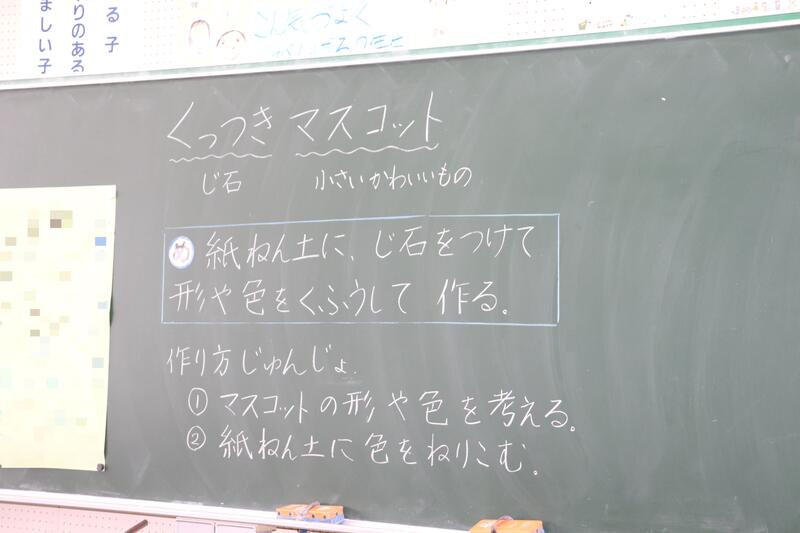 る子
りのある
ましい子
こん気づよく
くっつきマスコット
じ石 小さいかわいいもの
め 紙ねん土に、じ石をつけて
形や色をくふうして 作る。
作り方じゅんじょ.
① マスコットの形や色を考える。
② 紙ねん土に色をねりこむ。